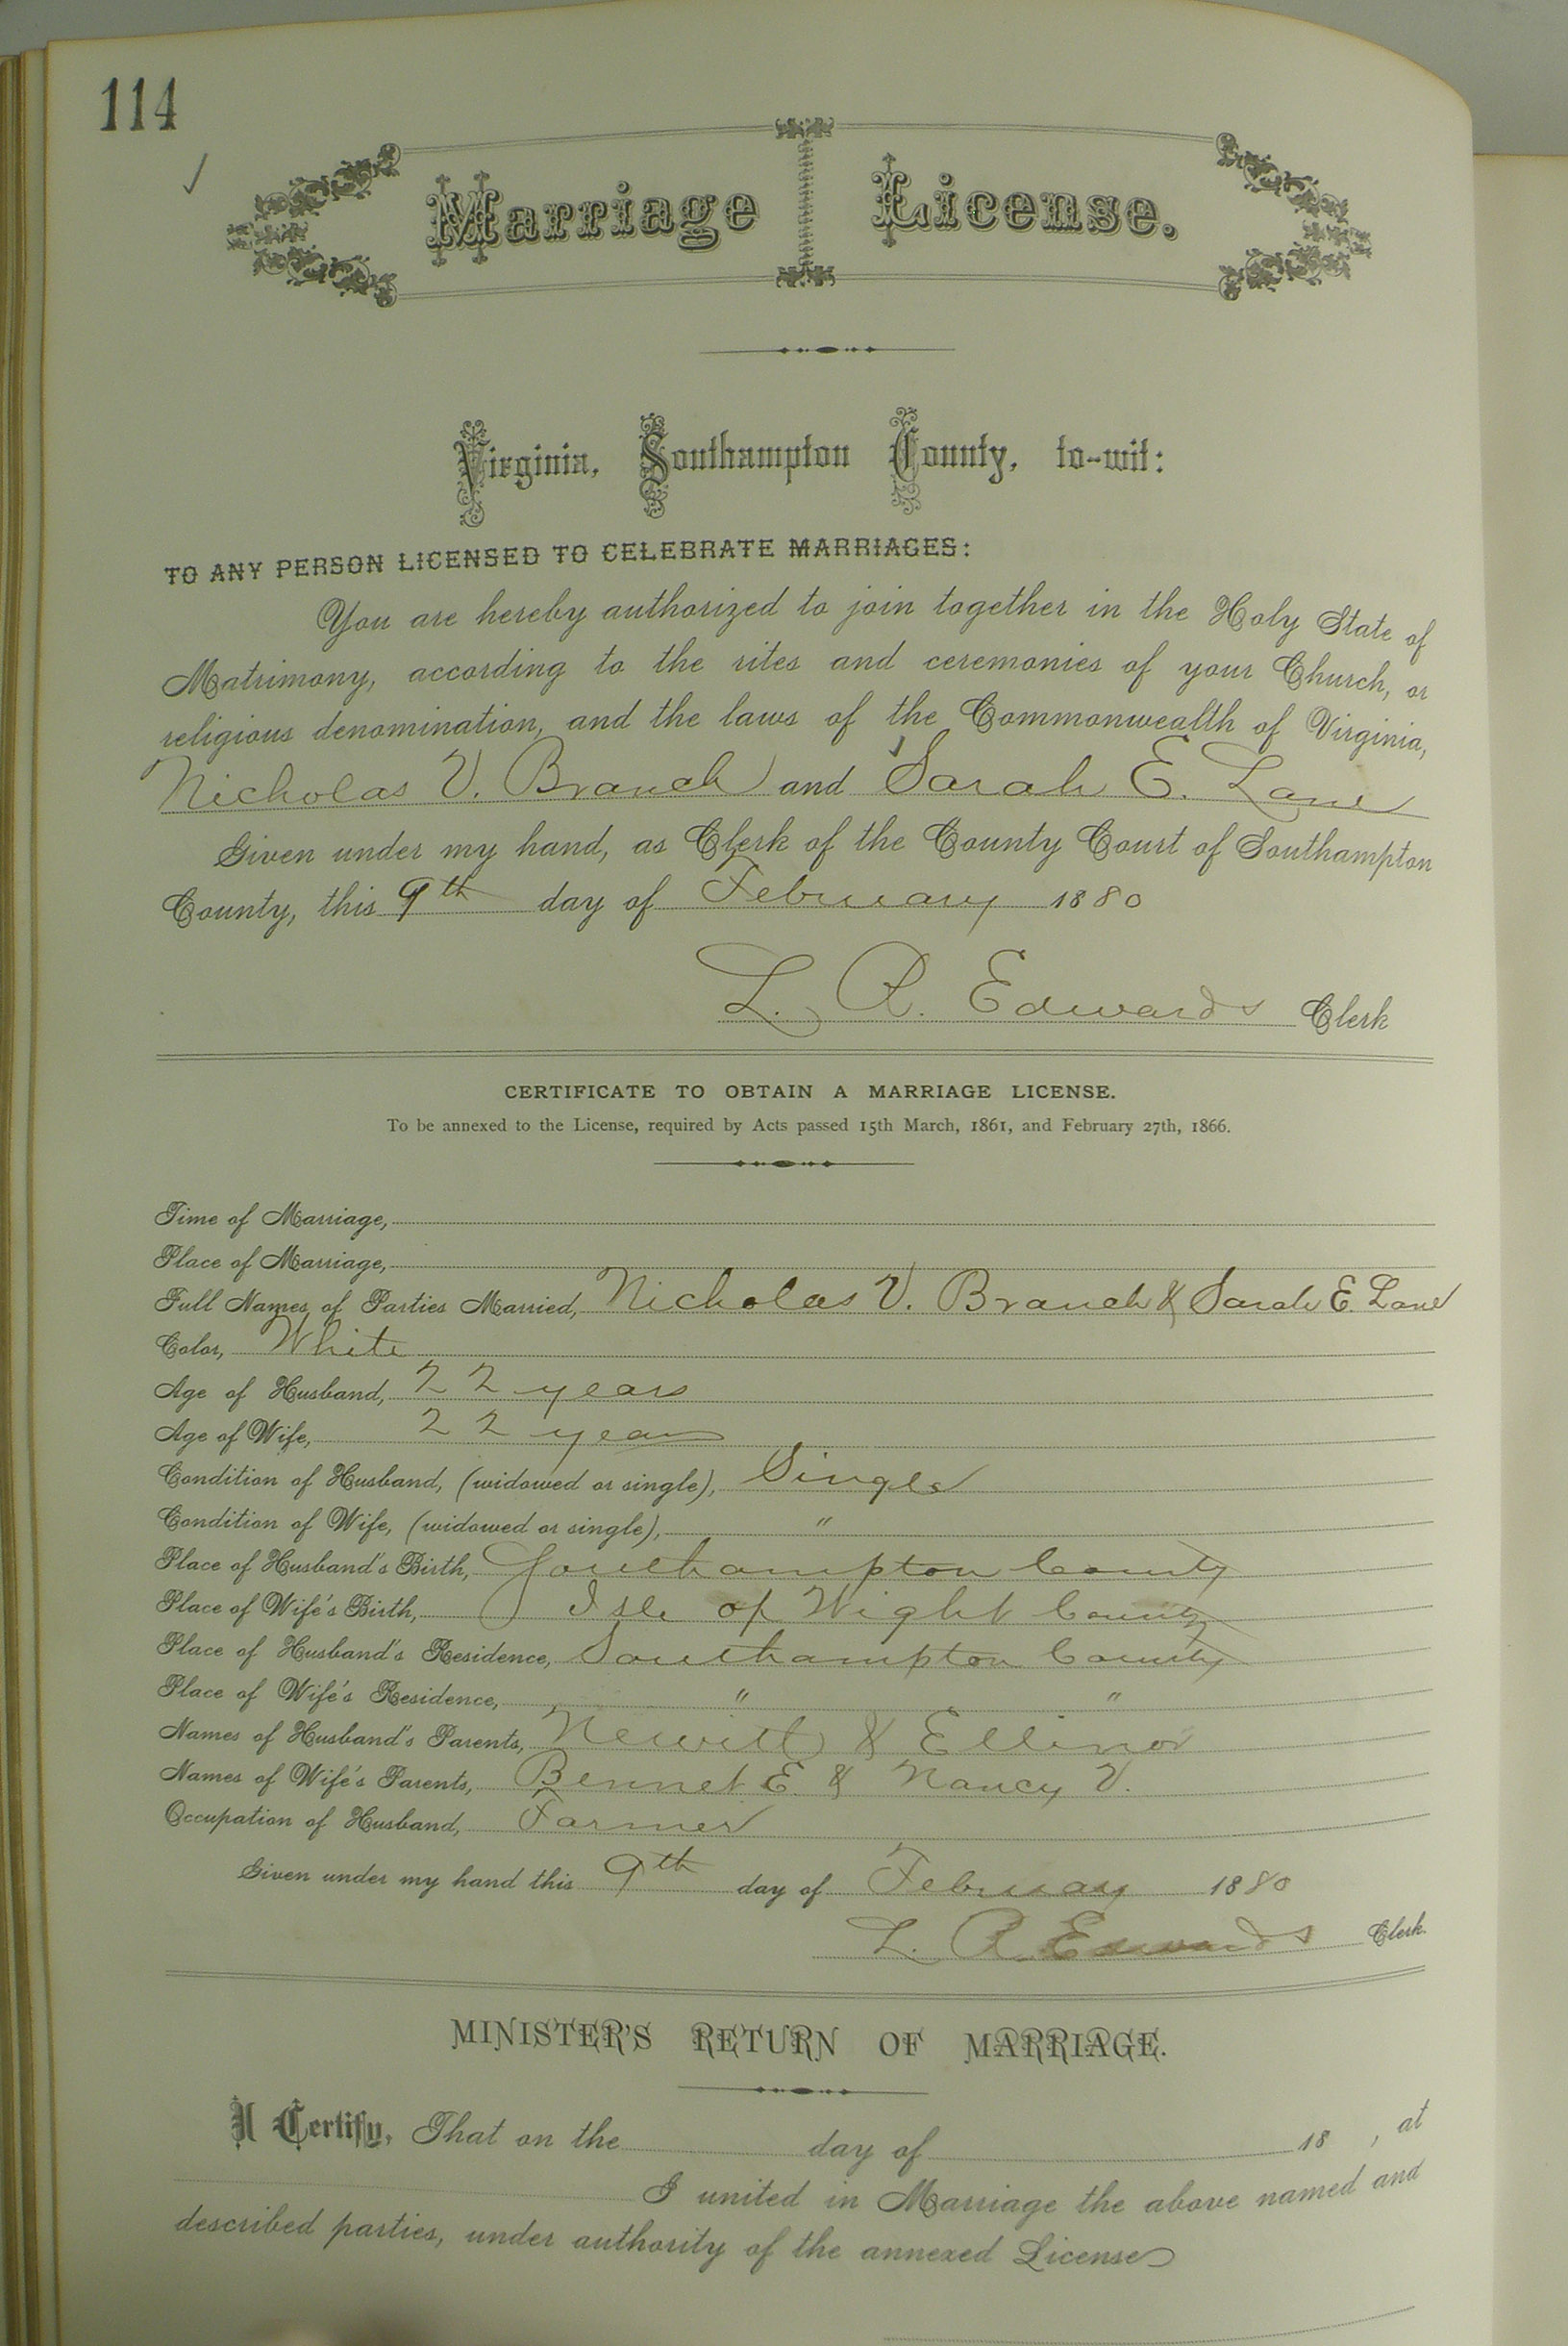 114
Marriage License.
Virginia, Southampton County, to-wit:
TO ANY PERSON LICENSED TO CELEBRATE MARRIAGES:
You are hereby authorized to join together in the Holy State of
Matrimony, according to the rites and ceremonies of your Church, or
religious denomination, and the laws of the Commonwealth of Virginia,
Nicholas V. Branch and Sarah E. Lane
Given under my hand, as Clerk of the County Court of Southampton
County, this 9th day of February 1880
L. R. Edwards Clerk
CERTIFICATE TO OBTAIN A MARRIAGE LICENSE.
To be annexed to the License, required by Acts passed 15th March, 1861, and February 27th, 1866.
Time of Marriage,
Place of Marriage,
Full Names of Parties Married, Nicholas V. Branch & Sarah E. Lane
Color, White
Age of Husband, 22 years
Age of Wife, 22 years
Condition of Husband, (widowed or single), Single
Condition of Wife, (widowed or single), "
Place of Husband's Birth, Southampton County
Place of Wife's Birth, Isle of Wight County
Place of Husband's Residence, Southampton County
Place of Wife's Residence, " "
Names of Husband's Parents, Newitt & Ellinor
Names of Wife's Parents, Bennet E. & Nancy V.
Occupation of Husband, Farmer
Given under my hand this 9th day of February 1880
L. R. Edwards Clerk.
MINISTER'S RETURN OF MARRIAGE.
I Certify, That on the day of 18 , at
I united in Marriage the above named and
described parties, under authority of the annexed License